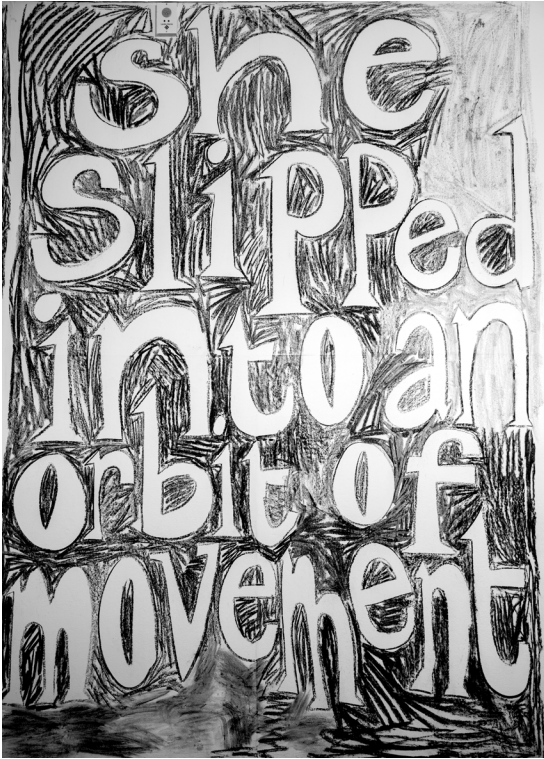 she
slipped
into an
orbit of
movement